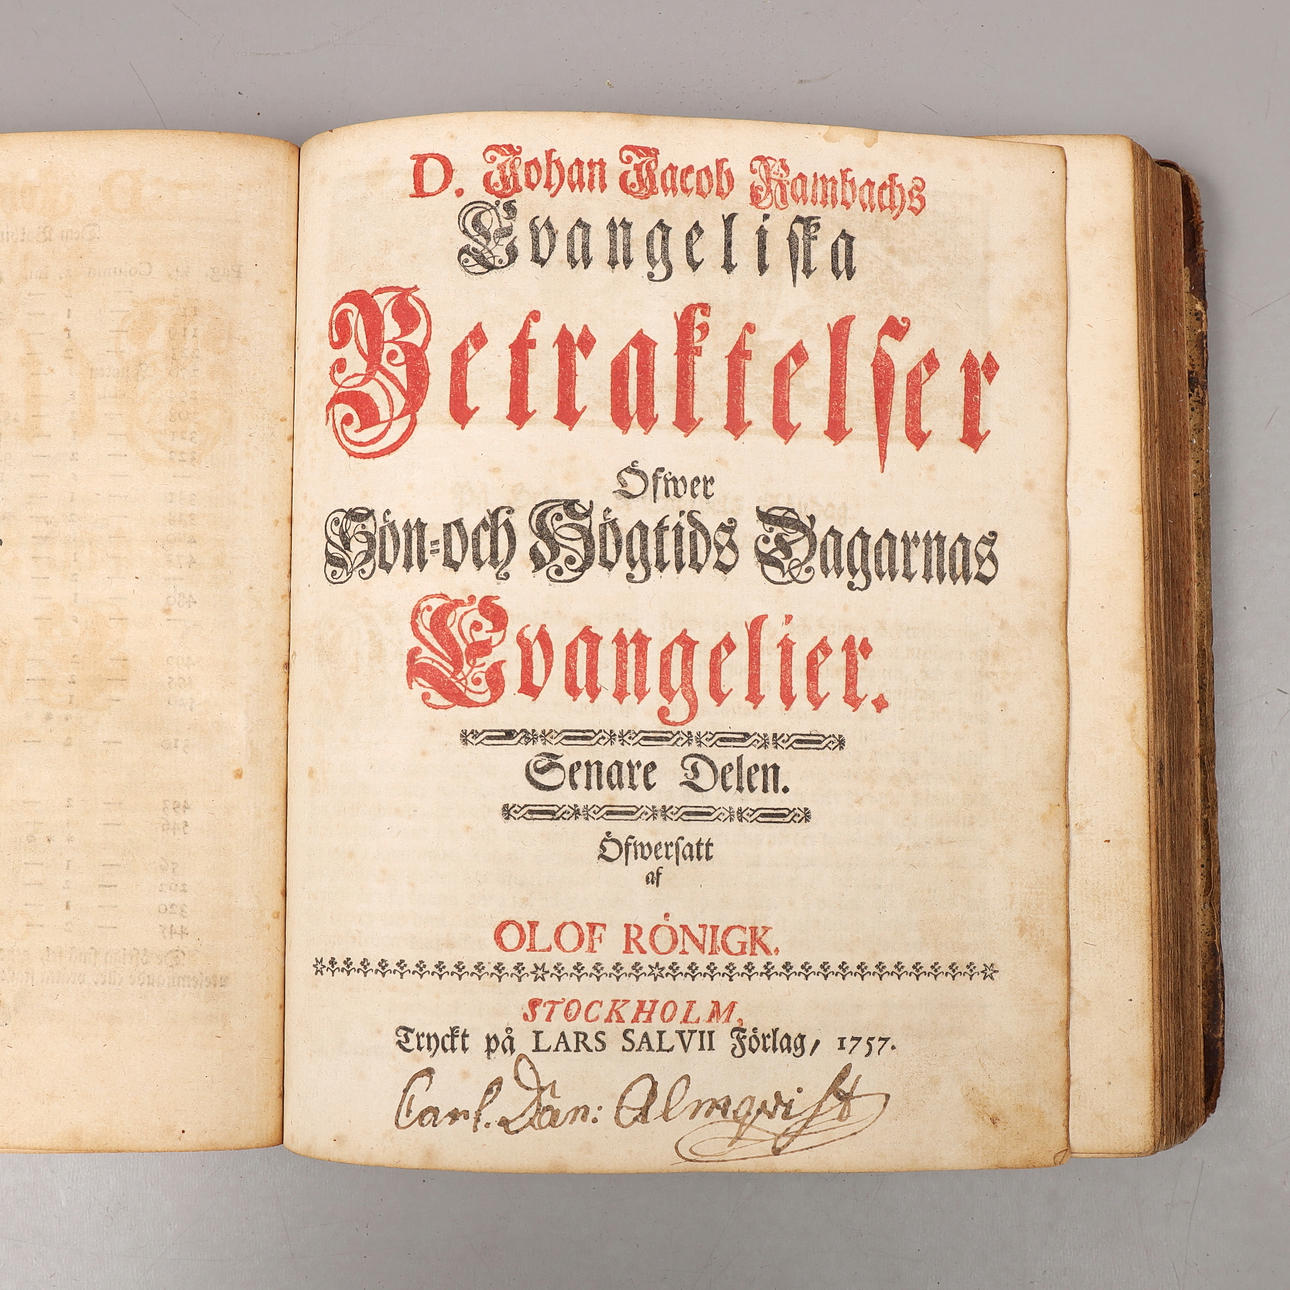 D. Johan Jacob Rambachs
Evangeliſka
Betraktelſer
Öfwer
Sön-och Högtids Dagarnas
Evangelier.
Senare Delen.
Öfwerſatt
af
OLOF RÖNIGK.
STOCKHOLM,
Tryckt på LARS SALVII Förlag, 1757.
Carl. Dan: Almqviſt